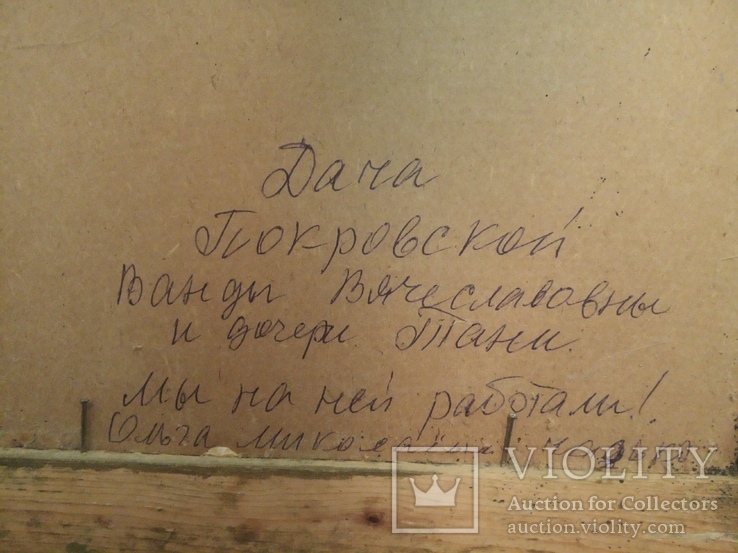 Дача
Покровской
Ванды Вячеславовны
и дочери Тани.
Мы на ней работали!
Ольга
VIOLITY
Auction for Collectors
auction.violity.com